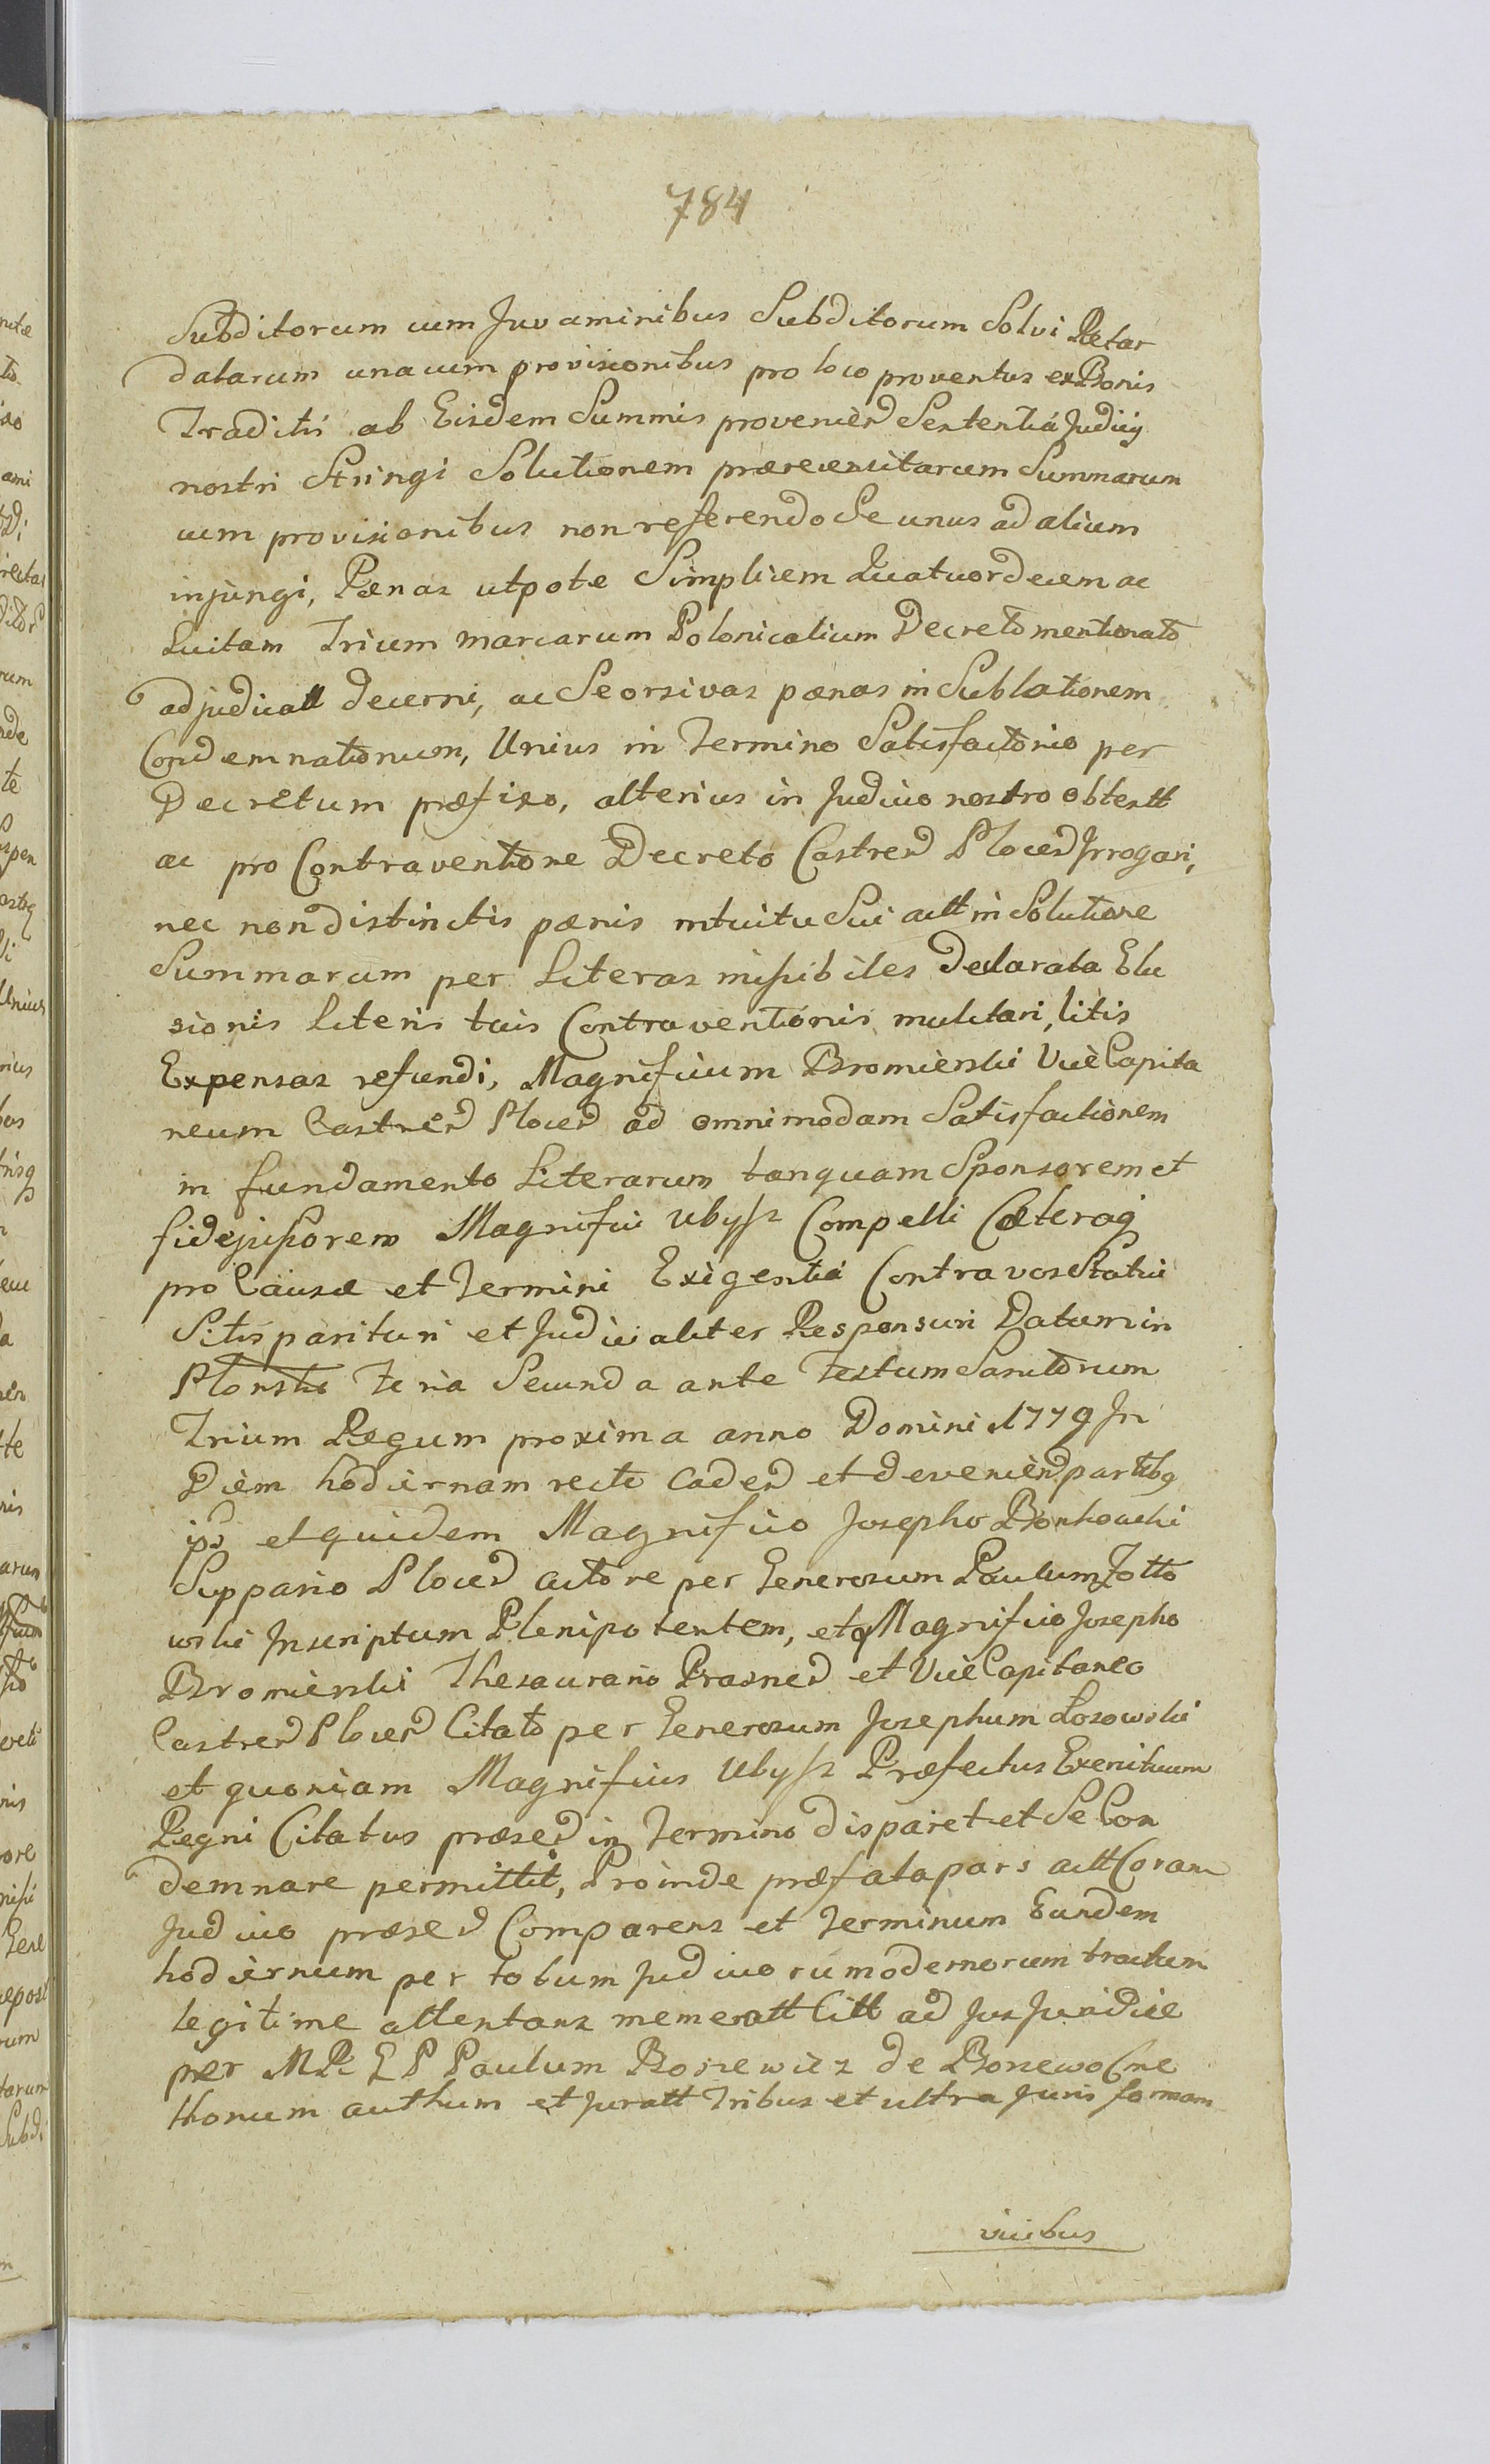 784
Subditorum cum Juvaminibus Subditorum Solvi Retar
datarum unacum provisionibus pro loco proventus ex Bonis
Traditis ab Eisdem Summis provenien Sententiá Judicij
nostri Stringi Solutionem præcensitarum Summarum
cum provisionibus non referendo Se unus ad alium
injungi, Pænas utpote Simplicem Quatuordecem ac
Luitam Trium marcarum Polonicalium Decreto mentionato
adjudicatt decerni, ac Seorsivas pænas in Sublationem
Condemnationum, Unius in Termino Satisfactorio per
Decretum præfixo, alterius in Judicio nostro obtentt
ac pro Contraventione Decreto Castren Plocen Irrogari,
nec non distinctis pænis intuitu Sui actt in Solutione
Summarum per Literas missibiles declarata Elu
sionis Literis tuis Contraventionis mulctari, litis
Expensas refundi, Magnificum Bromierski Vice Capita
neum Castren Plocen ad omnimodam Satisfactionem
in fundamento Literarum tanquam Sponsorem et
fidejussorem Magnifici Ulysz Compelli Cæteraq
pro Causæ et Termini Exigentiá Contra vos Statui
Sitis parituri et Judicialiter Responsuri Datum in
Płońsko Feria Secunda ante Festum Sanctorum
Trium Regum proxima anno Domini 1779 In
Diem hodiernam recte caden et devenien partibq
ips et quidem Magnifico Josepho Bonkowski
Suppario Plocen actore per Generosum Paulum Zołto
wski Inscriptum Plenipotentem, et Magnifico Josepho
Bromierski Thesaurario Prasnen et Vice Capitaneo
Castren Plocen Citato per Generosum Josephum Łosowski
et quoniam Magnificus Ulysz Præfectus Exercituum
Regni Citatus præsen in Termino disparet et Se Con
demnare permittit, Proinde præfata pars actt Coram
Judicio præsen Comparens et Terminum Eundem
hodiernum per totum Judiciorū modernorum tractum
legitime attentans memeratt Citt ad Jus Juridice
per M R G P Paulum Borzewicz de Borzewo Cme
thonum authum et Juratt Tribus et ultra Juris formam
vicibus